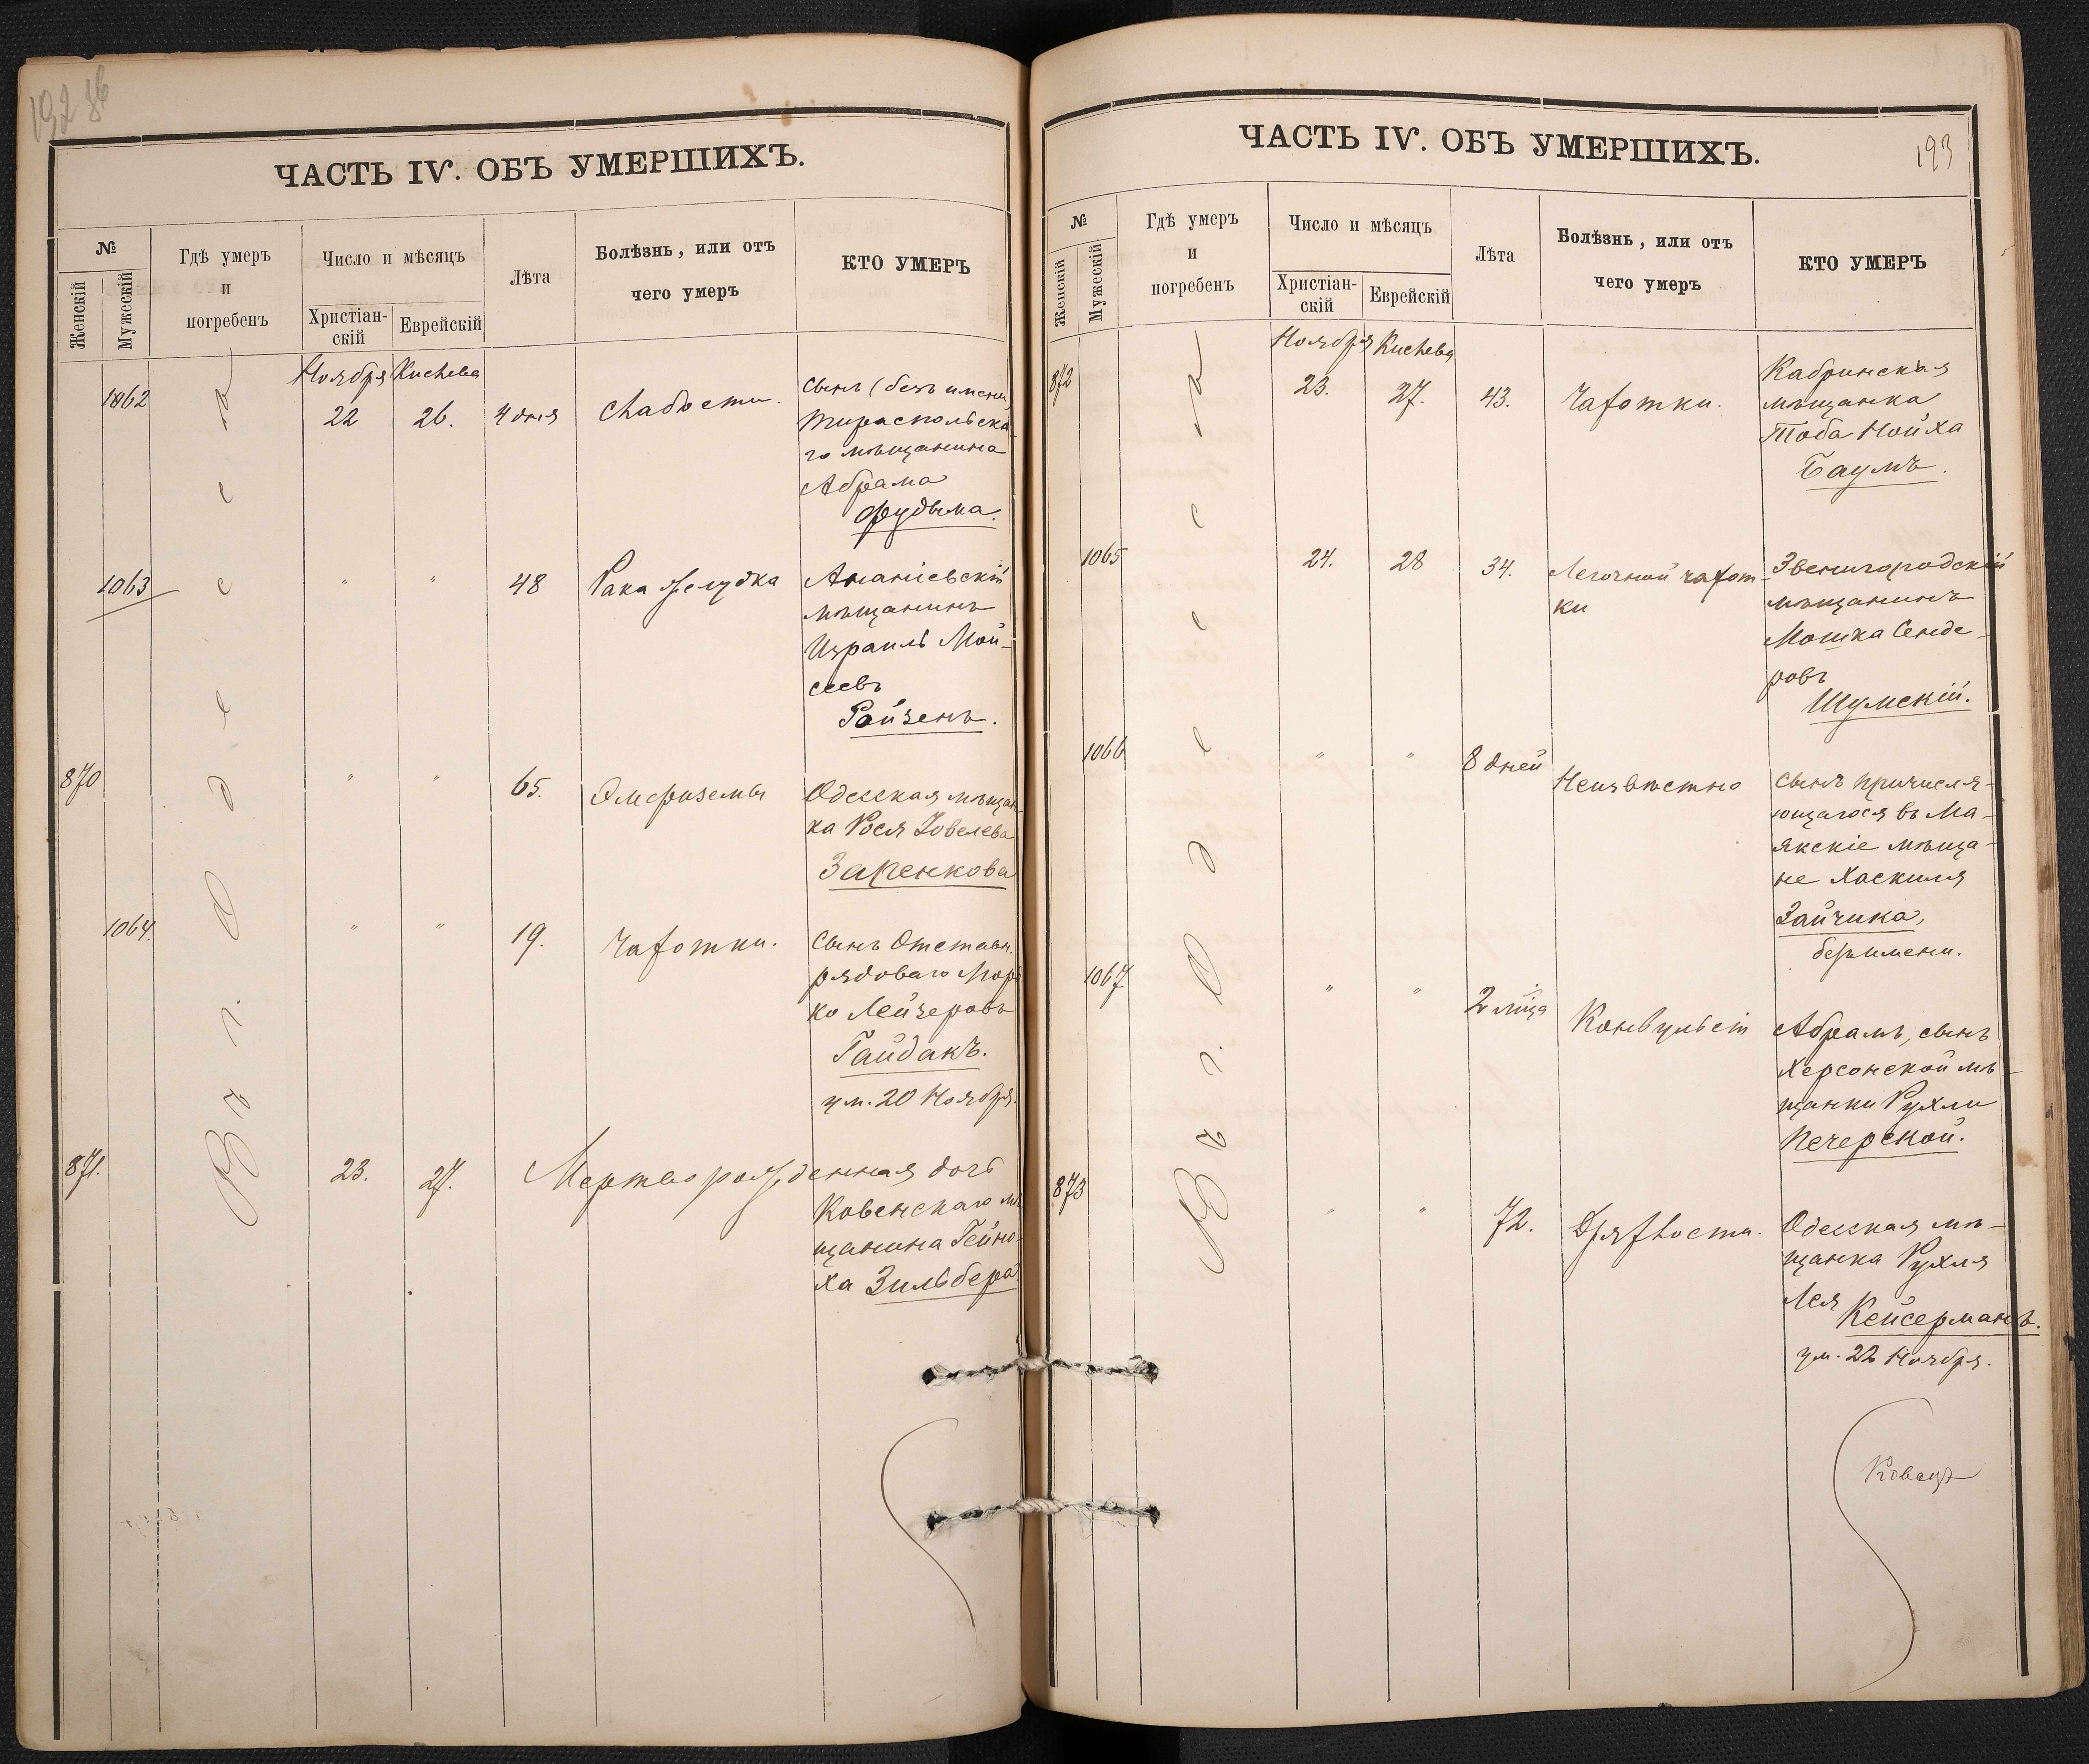 192 86
ЧАСТЬ IV. ОБЪ УМЕРШИХЪ.
№
Женскій
Мужескій
Гдѣ умеръ
и
погребенъ
Число и мѣсяцъ
Христіан-
скій
Еврейскій
Лѣта
Болѣзнь, или отъ
чего умеръ
КТО УМЕРЪ
Въ г. Одесса
Ноября Кислева
1862 22 26. 4 дня Слабости. Сынъ (безъ имени)
Тираспольска
го мѣщанина
Абрама
Фудыма.
1063 " " 48 Рака желудка Ананіевскій
мѣщанинъ
Израиль Мой-
сеевъ
Ройзенъ.
870 " " 65. Эмфиземы Одесская мѣщан-
ка Рося Іовелева
Заренкова
1064. " " 19. Чахотки. Сынъ Отставн.
рядоваго Мор
ко Лейзеровъ
Гайдакъ.
ум. 20 Ноября.
871. 23. 27. Мертворожденная дочь
Ковенскаго мѣ
щанина Гейно-
ха Зильбера
193
ЧАСТЬ IV. ОБЪ УМЕРШИХЪ.
№
Женскій
Мужескій
Гдѣ умеръ
и
погребенъ
Число и мѣсяцъ
Христіан-
скій
Еврейскій
Лѣта
Болѣзнь, или отъ
чего умеръ
КТО УМЕРЪ
Въ г. Одесса
Ноября Кислева
872 23. 27. 43. Чахотки. Кабринская
мѣщанка
Тоба Нойха
Баумъ.
1065 24. 28 34. Легочной чахот-
ки
Звенигородскій
мѣщанинъ
Мошка Сенде-
ровъ
Шумскій.
1066 " " 8 дней Неизвѣстно Сынъ причисля-
ющагося въ Ма-
якскіе мѣща-
не Хаскиля
Зайчика,
безъ имени.
1067 " " 2 мѣца Конвульсіи Абрамъ, сынъ
Херсонской мѣ-
щанки Рухли
Печерской.
873 " " 72. Дряхлости. Одесская мѣ-
щанка Рухля
Лея Кейсерманъ.
ум. 22 Ноября.